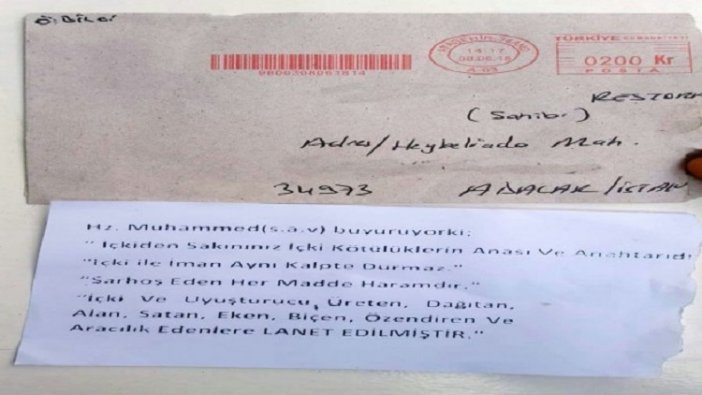 Ö. BİLGİ
14·17
08.06.15
A-03
TÜRKİYE CUMHURİYETİ
0200 Kr
POSTA
RESTORA
(Sahibi)
Adres/Heybeliada Mah.
34973 ADALAR/İSTAN
Hz. Muhammed(s.a.v) buyuruyorki;
" İçkiden Sakınınız İçki Kötülüklerin Anası Ve Anahtarıdı
"İçki ile İman Aynı Kalpte Durmaz."
"Sarhoş Eden Her Madde Haramdır."
"İçki Ve Uyuşturucu Üreten, Dağıtan,
Alan, Satan, Eken, Biçen, Özendiren Ve
Aracılık Edenlere LANET EDİLMİŞTİR."